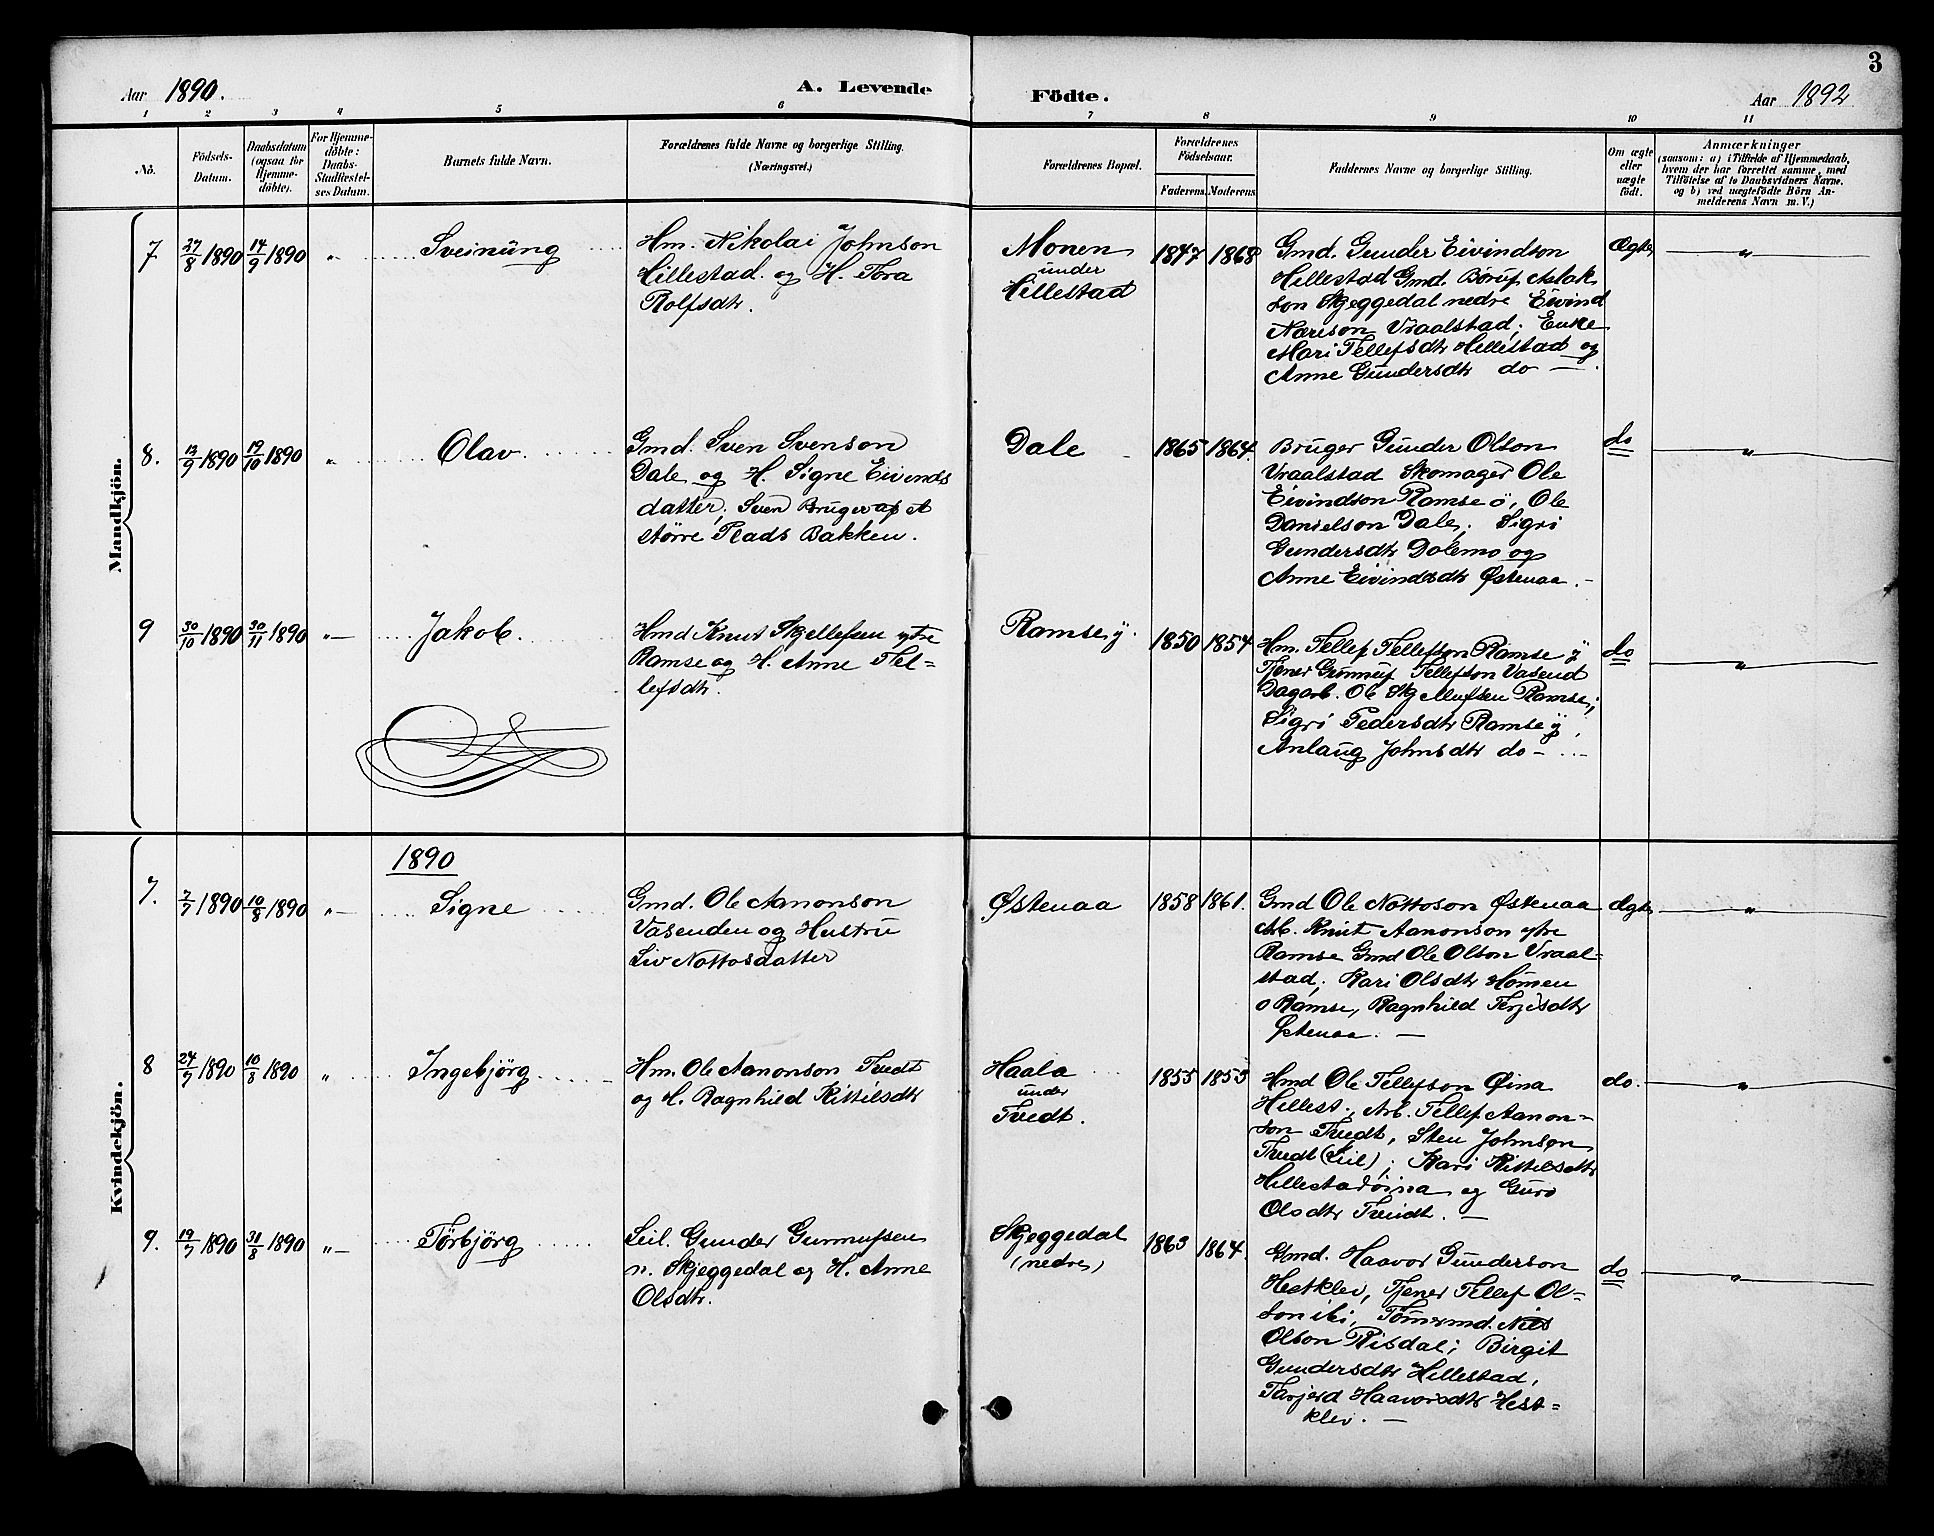 3
Aar 1890.
A. Levende
Födte.
Aar 1892
1 2 3 4 5 6 7 8 9 10 11
No.
Födsels-
Datum.
Daabsdatum
(ogsaa for
Hjemme-
döbte).
For Hjemme-
döbte:
Daabs-
Stadfæstel-
ses Datum.
Barnets fulde Navn.
Forældrenes fulde Navne og borgerlige Stilling.
(Næringsvei.)
Forældrenes Bopæl.
Forældrenes
Födselsaar.
Faderens. Moderens.
Faddernes Navne og borgerlige Stilling.
Om ægte
eller
uægte
födt.
Anmærkninger
(saasom: a) i Tilfælde af Hjemmedaab,
hvem der har forrettet samme, med
Tilföielse af to Daabsvidners Navne,
og b) ved uægtefödte Börn An-
melderens Navn m. V.)
Mandkjön.
7 27/8 1890 14/9 1890 " Sveinung
Hm. Nikolai Johnson
Hillestad og H. Tora
Rolfsdtr.
Monen
under
Hillestad
1847 1868
Gmd. Gunder Eivindson
Hillestad Gmd. Börup Aslak
son Skjeggedal nedre Eivind
Næreson Vraalstad; Enke
Mari Tellefsdtr Hillestad og
Anne Gundersdtr do —.
Ægte "
8. 12/9 1890 19/10 1890 " Olav
Gmd. Sven Svenson
Dale og H. Signe Eivinds
datter; Sven Bruger af et
större Plads Bakken.
Dale
1865 1864.
Bruger Gunder Olson
Vraalstad Skomager Ole
Eivindson Ramse ö, Ole
Danielson Dale; Sigri
Gundersdtr Dalemo og
Anne Eivindsdtr Østenaa. -
do "
9 30/10 1890 30/11 1890 " Jakob.
Hmd Knut Skjellefsen ytre
Ramse og H. Anne Tel=
lefsdtr.
Ramse, y.
1850 1854
Hm. Tellef Tellefson Ramse y
Tjener Grunnuf Tellefson Vasend
Dagarb. Ole Ramse;
Sigri Pedersdtr Ramse y,
Anlaug Johnsdtr do - ...
do "
Kvindekjön.
1890
7. 7/7 1890 10/8 1890 " Signe
Gmd. Ole Aanonson
Vasenden og Hustru
Liv Nottosdatter
Østenaa
1858 1861.
Gmd Ole Nottoson Østenaa
Arb. Knut Aanonson ytre
Ramse Gmd Ole Olson Vraal=
stad; Kari Olsdtr Hömen
o Ramse, Ragnhild Terjesdtr
Østenaa. —
Ægte "
8 24/7 1890 10/8 1890 " Ingebjörg
Hm. Ole Aanonson Tvedt
og H. Ragnhild Kittilsdtr
Haala
under
Tvedt.
1855 1853
Hmd Ole Tellefson Øina
Hillest., Arb. Tellef Aanon=
son Tvedt, Sten Johnson
Tvedt (Leil); Kari Kittilsdtr
Hillestadöina og Guro
Olsdtr Tveidt. —
do. "
9. 19/7 1890 31/8 1890 " Törbjörg
Leil. Gunder Gunnufsen
n. Skjeggedal og H. Anne
Olsdtr.
Skjeggedal
(nedre)
1863 1864.
Gmd. Haavor Gunderson
Hestklev, Tjener Tellef Ol=
son ibi, Tömermd. Nils
Olson Risdal; Birgit
Gundersdtr Hillestad,
Tarjerd Haavorsdtr Hest=
klev. —
do "